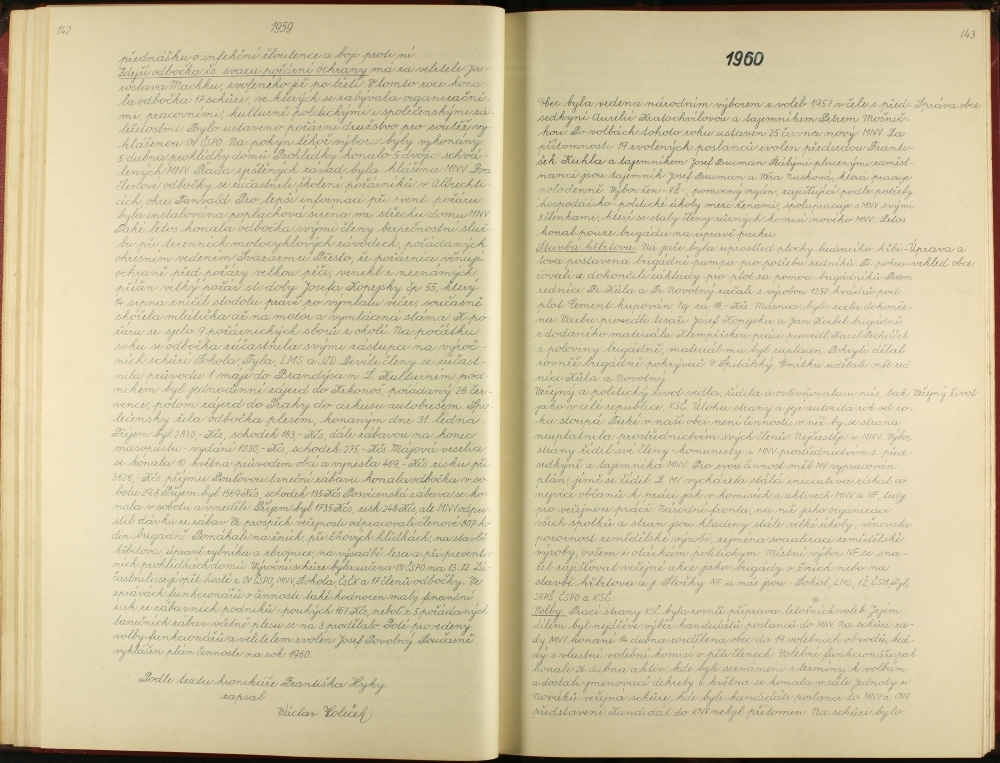 142
1959
přednášku o infekční žloutence a boji proti ní.
Zdejší odbočka čs. svazu požární ochrany má za velitele Ja-
roslava Machku, zvoleného již po třetí. V tomto roce kona-
la odbočka 17 schůzí, ve kterých se zabývala organizační-
mi, pracovními, kulturně politickými i společenskými zá-
ležitostmi. Bylo ustaveno požární družstvo pro soutěž vy-
hlášenou OV ČSPO. Na pokyn téhož výboru byly vykonány
5. dubna prohlídky domů. Prohlídky konalo 5 dvojic schvá-
lených MNV. Řada zjištěných závad byla hlášena MNV. Dva
členové odbočky se zúčastnili školení požárníků v Albrechti-
cích, okres Tanvald. Pro lepší informaci při event. požáru
byla instalována poplachová siréna na střechu domu MNV.
Také letos konala odbočka svými členy bezpečnostní služ-
bu při terénních motocyklových závodech, pořádaných
okresním vedením Svazarmu. Přesto, že požárníci věnují
ochraně před požáry velkou péči, vznikl z neznámých
příčin velký požár stodoly Josefa Kopejsky čp. 55, který
14. srpna zničil stodolu právě po výmlatu večer, současně
shořela mlátička až na motor a vymlácená sláma. K po-
žáru se sjelo 9 požárnických sborů z okolí. Na počátku
roku se odbočka zúčastnila svými zástupci na výroč-
ních schůzí Sokola, Tyla, LMS a JZD. Devíti členy se zúčast-
nila průvodu 1. máje do Brandýsa n. L. Kulturním pod-
nikem byl jednodenní zájezd do Krkonoš, pořádaný 25. čer-
vence, potom zájezd do Prahy do cirkusu autobusem. Spo-
lečensky žila odbočka plesem, konaným dne 31. ledna.
Příjem byl 2830,- Kčs, schodek 183,- Kčs, dále zábavou na konec
masopustu - vydání 1030,- Kčs, schodek 275,- Kčs. Májová veselice
se konala 10. května průvodem obcí a vynesla 469,- Kčs zisku při
3626,- Kčs příjmu. Pouťovou taneční zábavu konala odbočka v so-
botu 29.8. Příjem byl 1569 Kčs, schodek 135 Kčs. Posvícenská zábava se ko-
nala v sobotu a v neděli. Příjem byl 1735 Kčs, zisk 246 Kčs, ale MNV odpu-
stil dávku ze zábav. Ve prospěch veřejnosti odpracovali členové 807 ho-
din brigádně. Pomáhali na žních, při žňových hlídkách, na stavbě
hřbitova, úpravě rybníka a zbrojnice, na výsadbě lesa a při preventiv-
ních prohlídkách domů. Výroční schůze byla určena OV ČSPO na 13.12. Zú-
častnili se jí opět hosté z OV ČSPO, MNV, Sokola, ČSČK a 17 členů odbočky. Ve
zprávách funkcionářů o činnosti také hodnocen malý finanční
zisk ze zábavních podniků - pouhých 167 Kčs, neboť z 5 pořádaných
tanečních zábav včetně plesu se na 3 prodělalo. Poté provedeny
volby funkcionářů a velitelem zvolen Josef Novotný. Současně
vyhlášen plán činnosti na rok 1960.
Podle textu kronikáře Františka Hyky
zapsal
Václav Holeček
143
1960
Obec byla vedena národním výborem z voleb 1957 v čele s před-
sedkyní Aurelií Kratochvílovou a tajemníkem Petrem Mošnič-
kou. Po volbách tohoto roku ustaven 25. června nový MNV. Za
přítomnosti 19 zvolených poslanců zvolen předsedou Franti-
šek Kuhla a tajemníkem Josef Ducman. Stálými placenými zaměst-
nanci jsou tajemník Josef Ducman a Věra Nusková, která pracuje
polodenně. Výbor žen - VŽ -, pomocný orgán, zajišťující podle potřeby
hospodářsko-politické úkoly mezi ženami, spolupracuje s MNV svými
5 členkami, které se staly členy různých komisí nového MNV. Letos
konal pouze brigádu na úpravě parku.
Správa obce
Stavba hřbitova. Na jaře byla uprostřed plochy budoucího hřbi-
tova postavena brigádně pumpa pro potřebu zedníků. Ti pokra-
čovali a dokončili základy pro plot za pomoci brigádníků. Potom
zedníci Fr. Kůla a Fr. Novotný začali s výrobou 1250 kvádrů pod
plot. Cement kupován 1 q za 18,- Kčs. Márnice byla zcela dokonče-
na. Vazbu provedli tesaři Josef Kopejska a Jan Korbel brigádně
z dodaného materiálu. Klempířskou práci provedl Karel Pecháček
z poloviny brigádně, materiál mu byl zaplacen. Pokrytí dělal
rovněž brigádně pokrývač V. Špitálský. Omítku udělali opět zed-
níci Kůla a Novotný.
Úprava a
vzhled obce
Veřejný a politický život vedla, řídila a ovlivňovala u nás, tak
jako v celé republice, KSČ. Úloha strany a její autorita rok od ro-
ku stoupá. Také v naší obci není činnosti, v níž by se strana
neuplatnila prostřednictvím svých členů. Nejčastěji v MNV. Výbor
strany řídil své členy - komunisty v MNV prostřednictvím s před-
sedkyně a tajemníka MNV. Pro svou činnost měl MV vypracován
plán, jímž se řídil. Z MV vycházela stálá iniciativa získat co
nejvíce občanů k práci jak v komisích a aktivech MNV a NF, tedy
pro veřejnou práci. Národní fronta, na niž jako organizaci
všech spolků a stran jsou kladeny stále velké úkoly, věnovala
pozornost zemědělské výrobě, zejména socializaci zemědělské
výroby, ovšem i otázkám politickým. Místní výbor NF se sna-
žil zajišťovat veřejné akce jako brigády o žních nebo na
stavbě hřbitova a j. Složky NF u nás jsou: Sokol, LMS, VŽ, ČSM, Tyl,
SRPŠ, ČSPO a KSČ.
Veřejný život
Volby. Prací strany KSČ byla rovněž příprava letošních voleb. Jejím
dílem byl nejdříve výběr kandidátů poslanců do MNV. Na schůzi ra-
dy MNV konané 14. dubna rozdělena obec do 19 volebních obvodů, kaž-
dý s vlastní volební komisí o pěti členech. Volební funkcionáři pak
konali 26. dubna aktiv, kde byli seznámeni s termíny k volbám
a dostali jmenovací dekrety. 6. května se konala v sále Jednoty u
Nováků veřejná schůze, kde byli kandidáti poslanců do MNV a ONV
představeni. Kandidát do KNV nebyl přítomen. Na schůzi bylo